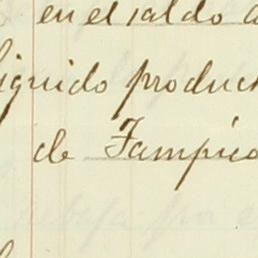 en el saldo d
iquido produc
de Tampico